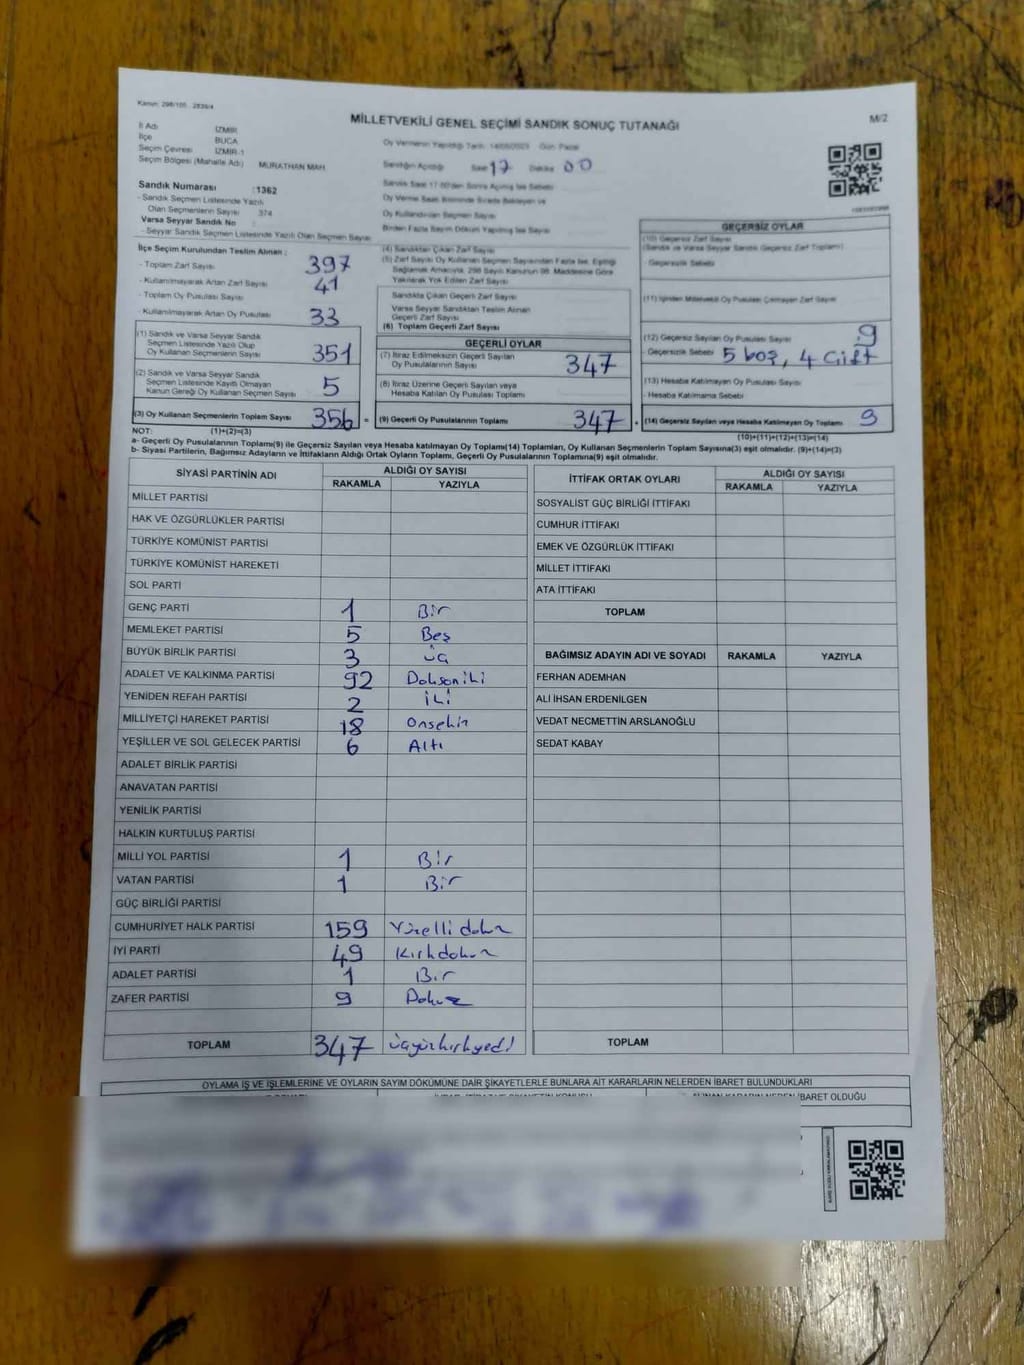 Kanun: 298/105 2839/4
MİLLETVEKİLİ GENEL SEÇİMİ SANDIK SONUÇ TUTANAĞI
M/2
İl Adı İZMİR
İlçe BUCA
Seçim Çevresi İZMİR-1
Seçim Bölgesi (Mahalle Adı) MURATHAN MAH
Oy Vermenin Yapıldığı Tarih: 14/05/2023 Gün: Pazar
Sandığın Açıldığı Saat 17 Dakika 00
Sandık Numarası :1362
- Sandık Seçmen Listesinde Yazılı
Olan Seçmenlerin Sayısı 374
Varsa Seyyar Sandık No
- Seyyar Sandık Seçmen Listesinde Yazılı Olan Seçmen Sayısı
Sandık Saat 17.00'den Sonra Açılmış İse Sebebi
Oy Verme Saati Bitiminde Sırada Bekleyen ve
Oy Kullandırılan Seçmen Sayısı
Birden Fazla Sayım Döküm Yapılmış İse Sayısı
İlçe Seçim Kurulundan Teslim Alınan :
- Toplam Zarf Sayısı 397
- Kullanılmayarak Artan Zarf Sayısı 41
- Toplam Oy Pusulası Sayısı
- Kullanılmayarak Artan Oy Pusulası 33
(1) Sandık ve Varsa Seyyar Sandık
Seçmen Listesinde Yazılı Olup
Oy Kullanan Seçmenlerin Sayısı 351
(2) Sandık ve Varsa Seyyar Sandık
Seçmen Listesinde Kayıtlı Olmayan
Kanun Gereği Oy Kullanan Seçmen Sayısı 5
(3) Oy Kullanan Seçmenlerin Toplam Sayısı 356 =
(4) Sandıktan Çıkan Zarf Sayısı
(5) Zarf Sayısı Oy Kullanan Seçmen Sayısından Fazla İse, Eşitliği
Sağlamak Amacıyla, 298 Sayılı Kanunun 98. Maddesine Göre
Yakılarak Yok Edilen Zarf Sayısı
Sandıkta Çıkan Geçerli Zarf Sayısı
Varsa Seyyar Sandıktan Teslim Alınan
Geçerli Zarf Sayısı
(6) Toplam Geçerli Zarf Sayısı
GEÇERLİ OYLAR
(7) İtiraz Edilmeksizin Geçerli Sayılan
Oy Pusulalarının Sayısı 347
(8) İtiraz Üzerine Geçerli Sayılan veya
Hesaba Katılan Oy Pusulası Toplamı
(9) Geçerli Oy Pusulalarının Toplamı 347 +
GEÇERSİZ OYLAR
(10) Geçersiz Zarf Sayısı
(Sandık ve Varsa Seyyar Sandık Geçersiz Zarf Toplamı)
- Geçersizlik Sebebi
(11) İçinden Milletvekili Oy Pusulası Çıkmayan Zarf Sayısı
(12) Geçersiz Sayılan Oy Pusulası Sayısı 9
- Geçersizlik Sebebi 5 boş, 4 Çift
(13) Hesaba Katılmayan Oy Pusulası Sayısı
- Hesaba Katılmama Sebebi
(14) Geçersiz Sayılan veya Hesaba Katılmayan Oy Toplamı 9
NOT: (1)+(2)=(3)
(10)+(11)+(12)+(13)=(14)
a- Geçerli Oy Pusulalarının Toplamı(9) ile Geçersiz Sayılan veya Hesaba Katılmayan Oy Toplamı(14) Toplamları, Oy Kullanan Seçmenlerin Toplam Sayısına(3) eşit olmalıdır. (9)+(14)=(3)
b- Siyasi Partilerin, Bağımsız Adayların ve İttifakların Aldığı Ortak Oyların Toplamı, Geçerli Oy Pusulalarının Toplamına(9) eşit olmalıdır.
SİYASİ PARTİNİN ADI ALDIĞI OY SAYISI
RAKAMLA YAZIYLA
MİLLET PARTİSİ
HAK VE ÖZGÜRLÜKLER PARTİSİ
TÜRKİYE KOMÜNİST PARTİSİ
TÜRKİYE KOMÜNİST HAREKETİ
SOL PARTİ
GENÇ PARTİ 1 Bir
MEMLEKET PARTİSİ 5 Beş
BÜYÜK BİRLİK PARTİSİ 3 üç
ADALET VE KALKINMA PARTİSİ 92 Doksan iki
YENİDEN REFAH PARTİSİ 2 iki
MİLLİYETÇİ HAREKET PARTİSİ 18 Onsekiz
YEŞİLLER VE SOL GELECEK PARTİSİ 6 Altı
ADALET BİRLİK PARTİSİ
ANAVATAN PARTİSİ
YENİLİK PARTİSİ
HALKIN KURTULUŞ PARTİSİ
MİLLİ YOL PARTİSİ 1 Bir
VATAN PARTİSİ 1 Bir
GÜÇ BİRLİĞİ PARTİSİ
CUMHURİYET HALK PARTİSİ 159 Yüzelli dokuz
İYİ PARTİ 49 Kırkdokuz
ADALET PARTİSİ 1 Bir
ZAFER PARTİSİ 9 Dokuz
TOPLAM 347 üçyüzkırkyedi
İTTİFAK ORTAK OYLARI ALDIĞI OY SAYISI
RAKAMLA YAZIYLA
SOSYALİST GÜÇ BİRLİĞİ İTTİFAKI
CUMHUR İTTİFAKI
EMEK VE ÖZGÜRLÜK İTTİFAKI
MİLLET İTTİFAKI
ATA İTTİFAKI
TOPLAM
BAĞIMSIZ ADAYIN ADI VE SOYADI RAKAMLA YAZIYLA
FERHAN ADEMHAN
ALİ İHSAN ERDENİLGEN
VEDAT NECMETTİN ARSLANOĞLU
SEDAT KABAY
TOPLAM
OYLAMA İŞ VE İŞLEMLERİNE VE OYLARIN SAYIM DÖKÜMÜNE DAİR ŞİKAYETLERLE BUNLARA AİT KARARLARIN NELERDEN İBARET BULUNDUKLARI
ALINAN KARARIN NEDEN İBARET OLDUĞU